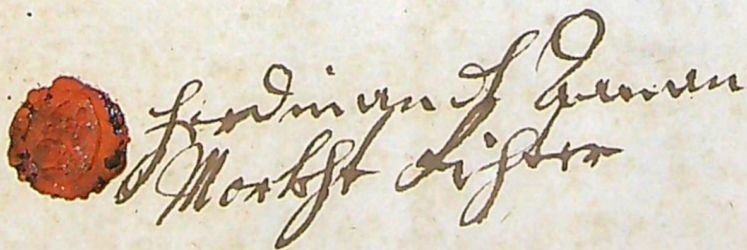 Ferdinandt
Markht Richter